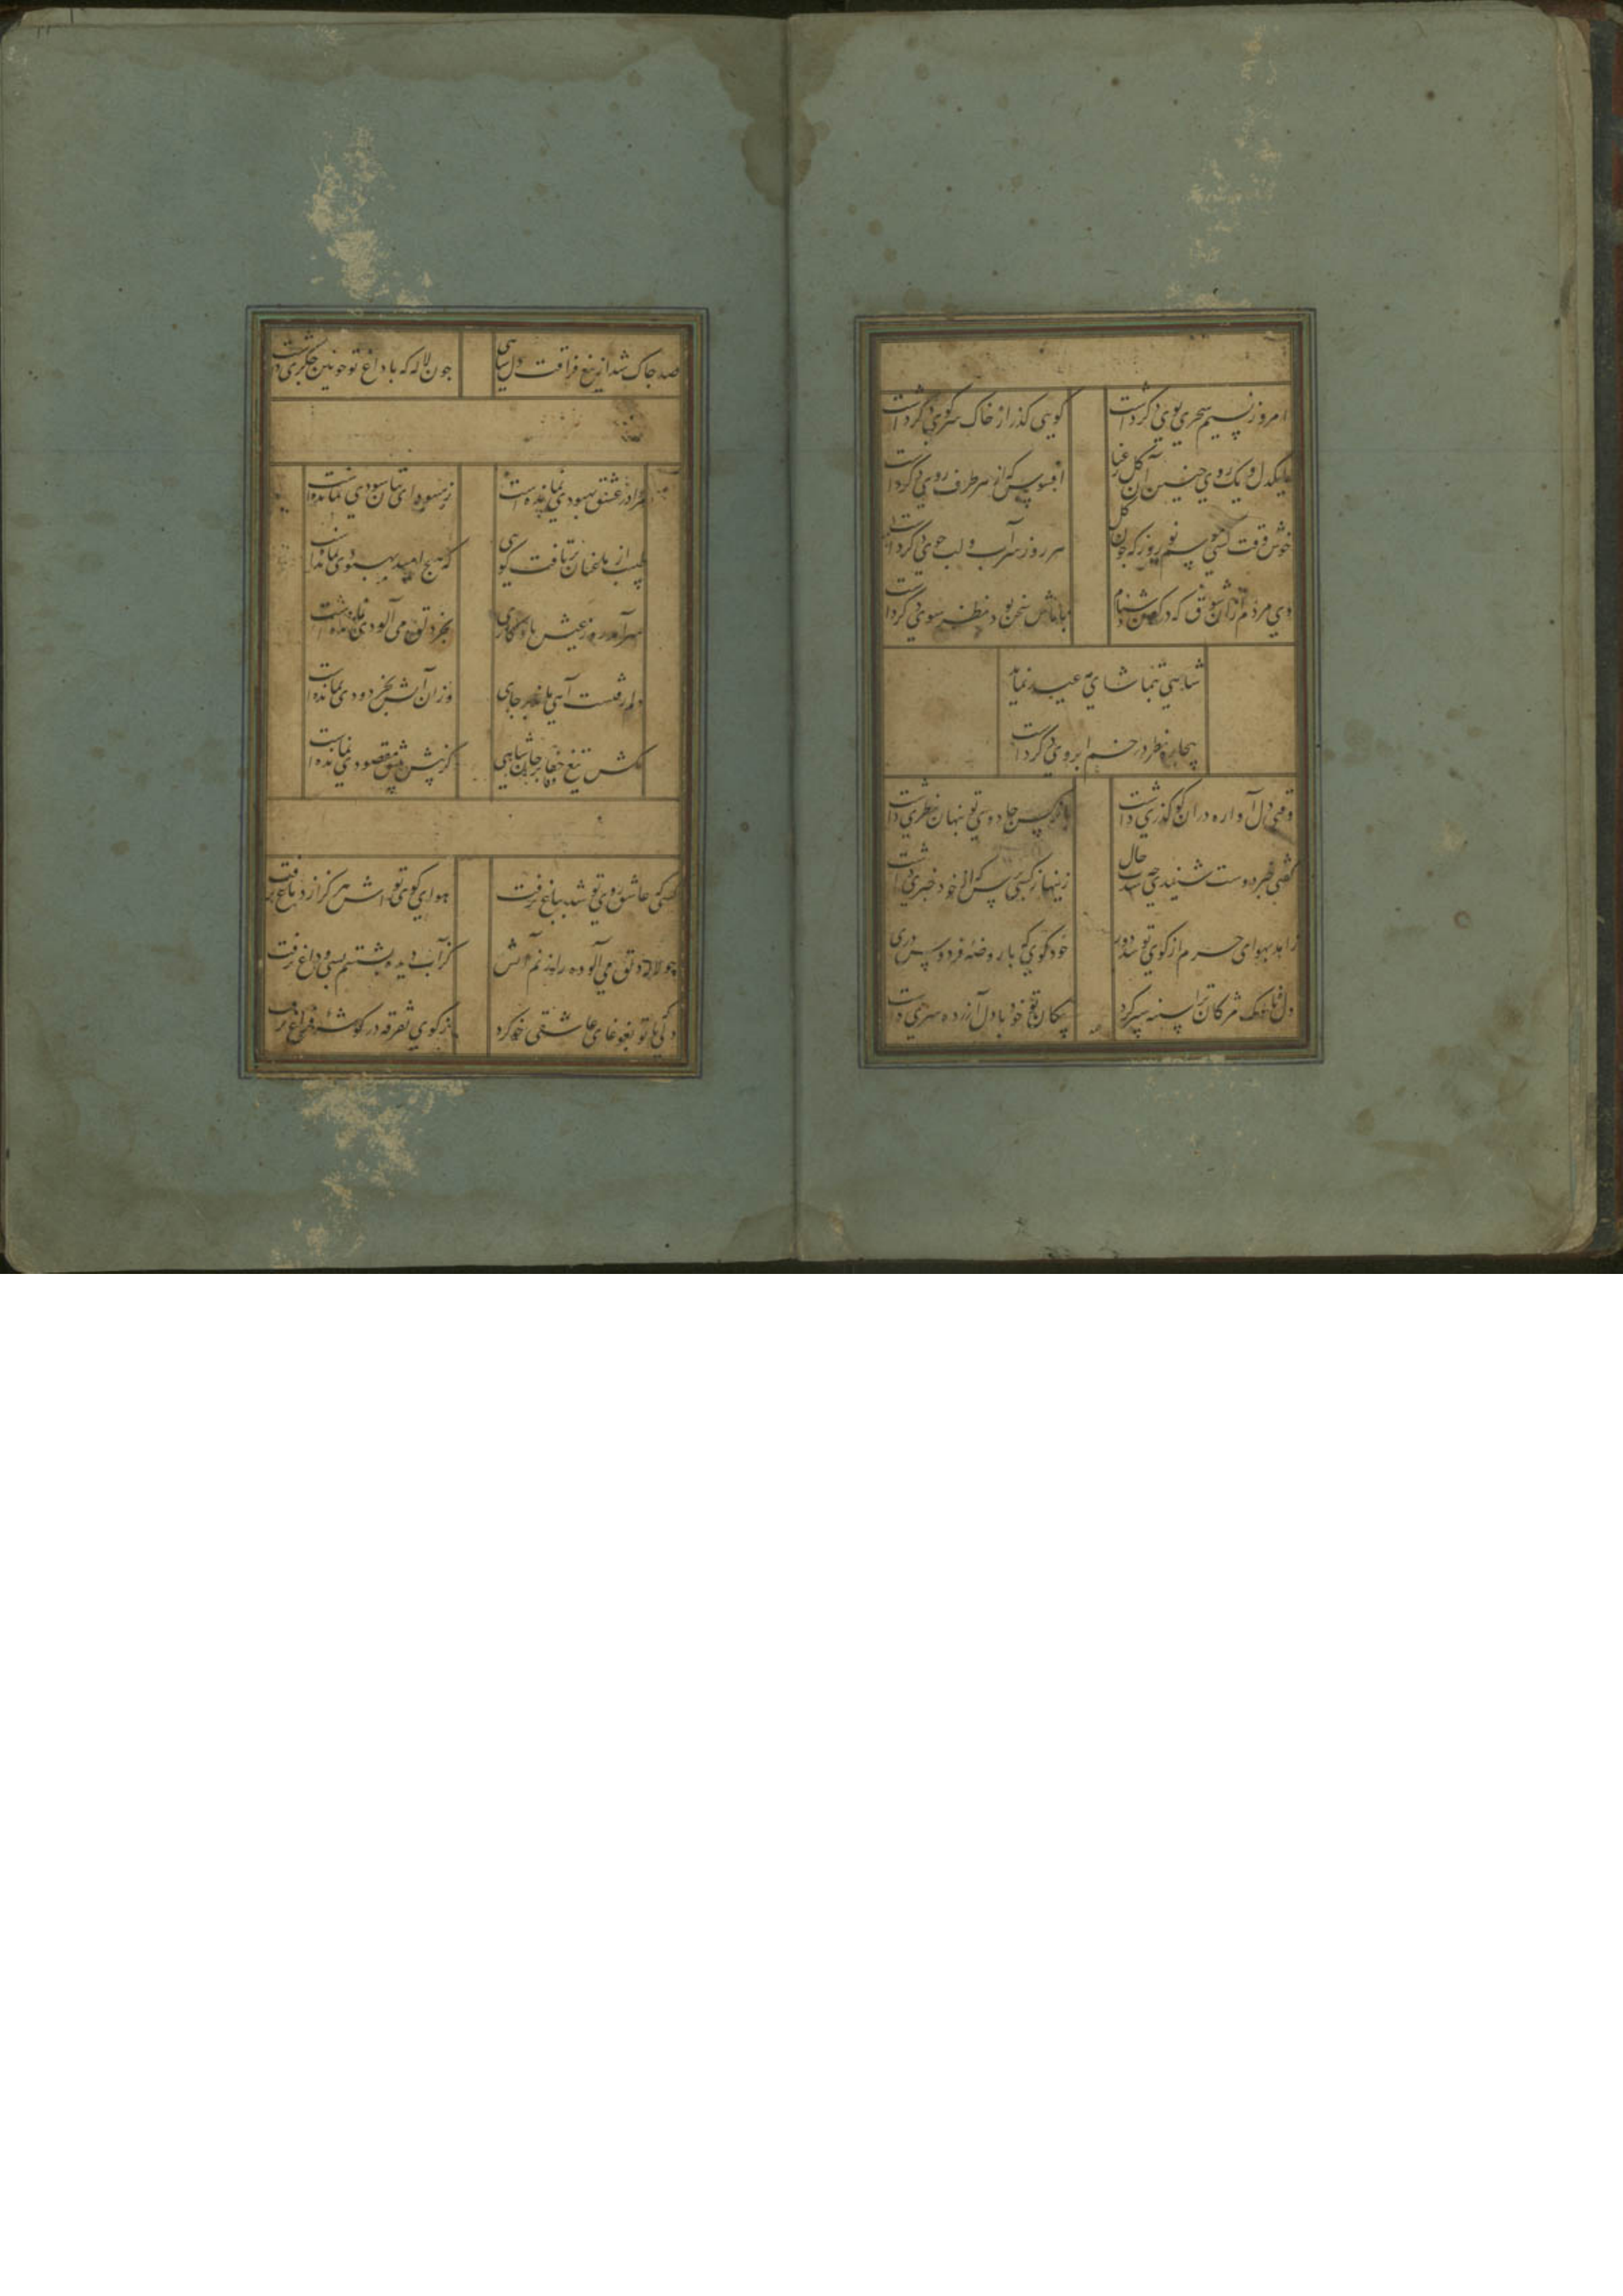 امروز نسیم سحری بوی دگر داشت
گویی گذر از خاک سر کوی دگر داشت
یکدل و یک روی چنین آن گل رعنا
افسوس که از هر طرف روی دگر داشت
خوش وقت کسی کو بموسم نوروز که چون گل
هر روز سر آب و لب جوی دگر داشت
دی مردم از آن شوق که در کشتن شاهی
با ماش سخن بود و نظر سوی دگر داشت
شاهی بتماشای مه عید نیامد
بیچاره نظر در خم ابروی دگر داشت
وقتی دل آواره در آن کو گذری داشت
با نرگس جادوی تو پنهان نظری داشت
گفتی خبر دوست شنیدی چه شدت حال
اینها ز کسی پرس که از خود خبری داشت
زاهد بهوای حرم از کوی تو شد دور
خود کوی تو با روضه فردوس دری
دل ناوک مژگان ترا سینه سپر کرد
پیکان تو خود با دل آزرده سری داشت
صد چاک شد از تیغ فراقت دل شاهی
چون لاله که با داغ تو خونین جگری داشت
مرا در عشق بهبودی نمانده است
ز سودای بتان سودی نمانده است
طبیب از تلخی جان
که هیچ امید بهبودی نمانده است
سر آمد روز عیش
بجز دلق می آلودی نمانده است
آهی ماند بر جای
وزان آتش بجز دودی نمانده است
مکش تیغ جفا بر جان شاهی
کزین پیش مقصودی نمانده است
کسی که عاشق روی تو شد بباغ نرفت
هوای کوی تواش هرگز از دماغ نرفت
چو لاله دلق می آلوده
کز آب دیده بشستم بسی و داغ نرفت
دلی که با تو بغوغای عاشقی خو کرد
ز کوی تفرقه در گوشه فراغ نرفت